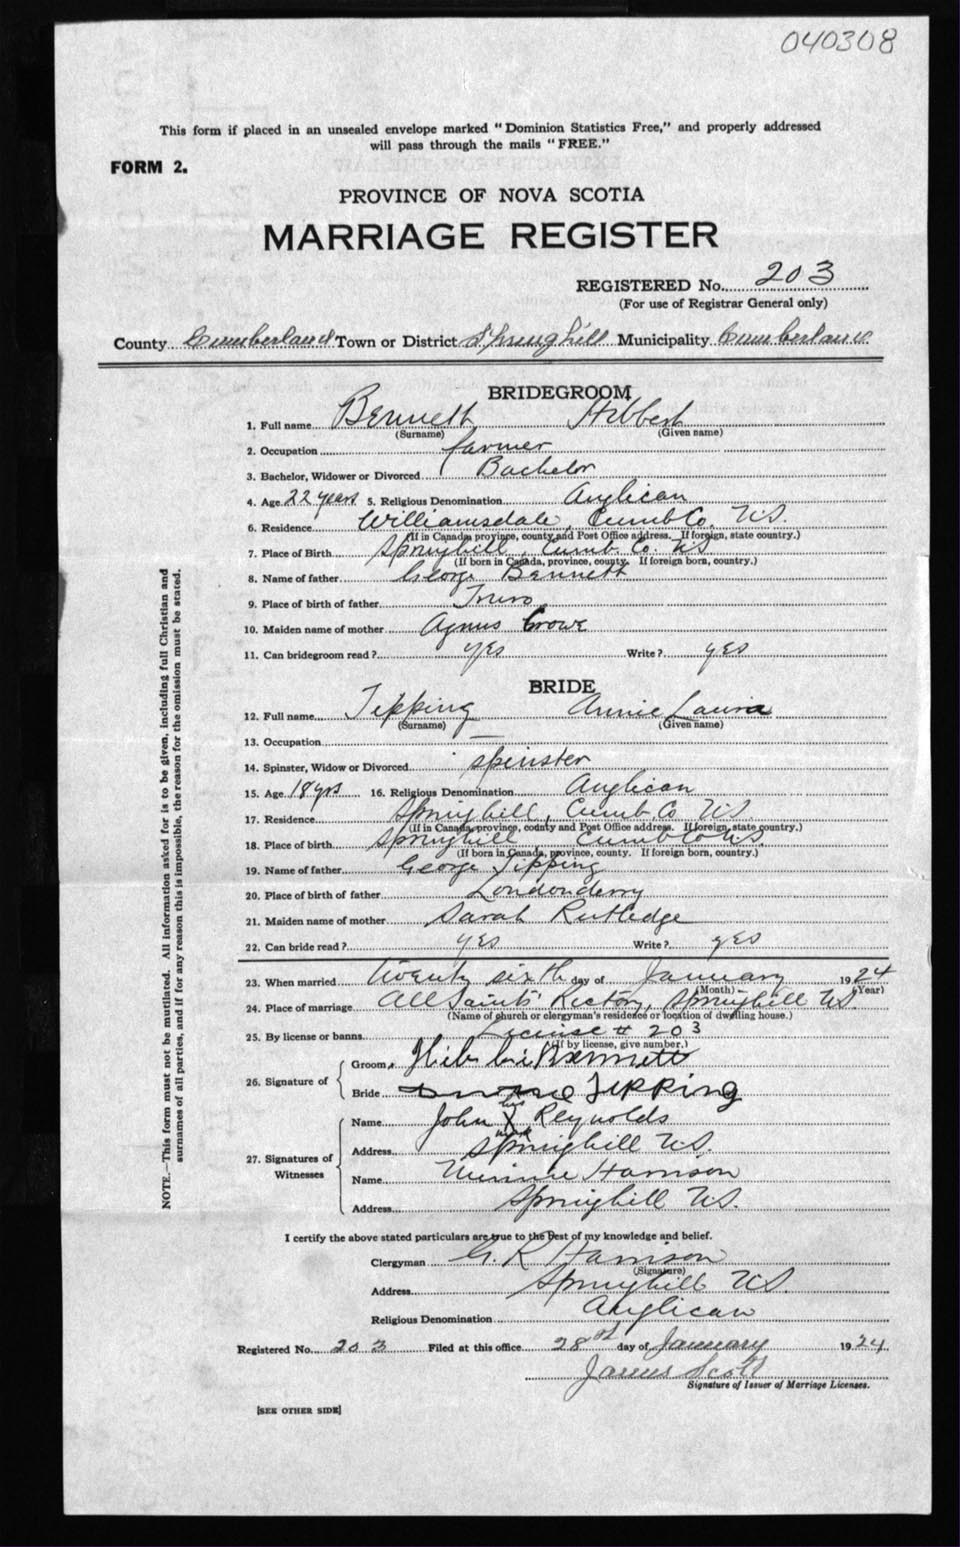 040308
This form if placed in an unsealed envelope marked "Dominion Statistics Free," and properly addressed
will pass through the mails "FREE."
FORM 2.
PROVINCE OF NOVA SCOTIA
MARRIAGE REGISTER
REGISTERED No. 203
(For use of Registrar General only)
County Cumberland Town or District Springhill Municipality Cumberland
BRIDEGROOM
1. Full name Bennett Hibbert
(Surname) (Given name)
2. Occupation farmer
3. Bachelor, Widower or Divorced Bachelor
4. Age 22 years 5. Religious Denomination Anglican
6. Residence Williamsdale, Cumb Co. NS.
(If in Canada, province, county and Post Office address. If foreign, state country.)
7. Place of Birth Springhill, Cumb. Co. NS
(If born in Canada, province, county. If foreign born, country.)
8. Name of father George Bennett
9. Place of birth of father Truro
10. Maiden name of mother Agnus Crowe
11. Can bridegroom read? yes Write? yes
BRIDE
12. Full name Tipping Annie Laura
(Surname) (Given name)
13. Occupation —
14. Spinster, Widow or Divorced spinster
15. Age 18 yrs 16. Religious Denomination Anglican
17. Residence Springhill, Cumb. Co NS.
(If in Canada, province, county and Post Office address. If foreign, state country.)
18. Place of birth Springhill Cumb Co NS.
(If born in Canada, province, county. If foreign born, country.)
19. Name of father George Tipping
20. Place of birth of father Londonderry
21. Maiden name of mother Sarah Rutledge
22. Can bride read? yes Write? yes
23. When married twenty sixth day of January 1924
(Month) (Year)
24. Place of marriage All Saints' Rectory, Springhill NS.
(Name of church or clergyman's residence or location of dwelling house.)
25. By license or banns License # 203
(If by license, give number.)
26. Signature of
Groom Bennett
Bride Tipping
27. Signatures of Witnesses
his
Name John X Reynolds
mark
Address Springhill NS.
Name Minnie Harrison
Address Springhill NS.
I certify the above stated particulars are true to the best of my knowledge and belief.
Clergyman G. R Harrison
(Signature)
Address Springhill NS.
Religious Denomination Anglican
Registered No. 203 Filed at this office 28 day of January 1924
James Scott
Signature of Issuer of Marriage Licenses.
[SEE OTHER SIDE]
NOTE.—This form must not be mutilated. All information asked for is to be given, including full Christian and
surnames of all parties, and if for any reason this is impossible, the reason for the omission must be stated.